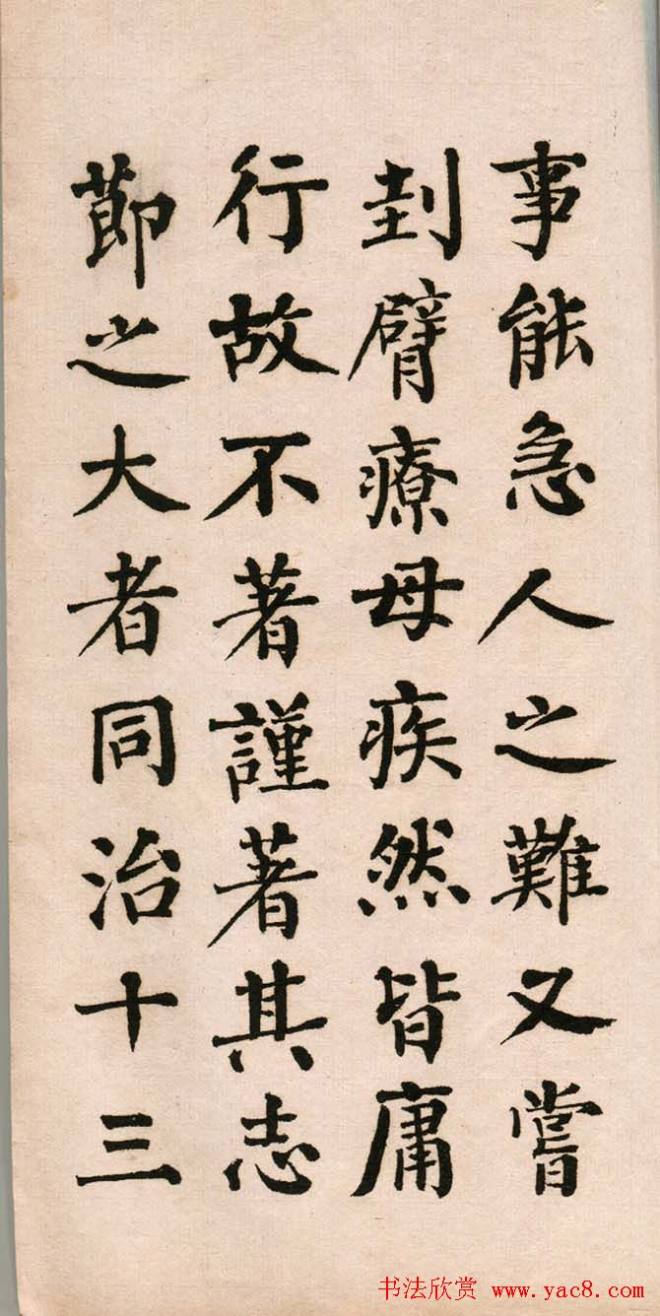 事能急人之難又嘗
刲臂療母疾然皆庸
行故不著謹著其志
節之大者同治十三
书法欣赏 www.yac8.com